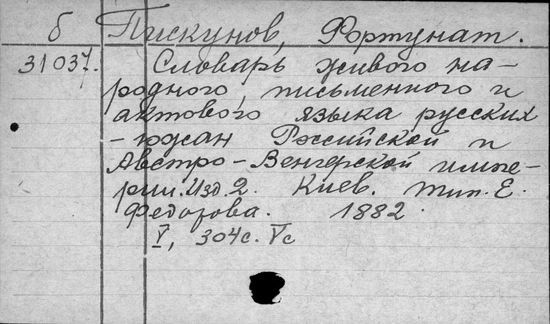 б Пискунов, Фортунат.
31037. Словарь живого на-
родного, письменного и
актового языка русских
-южан Российской и
Австро-Венгерской импе-
рии. Изд. 2. Киев. Тип. Е.
Федорова. 1882.
V, 304с. Vс